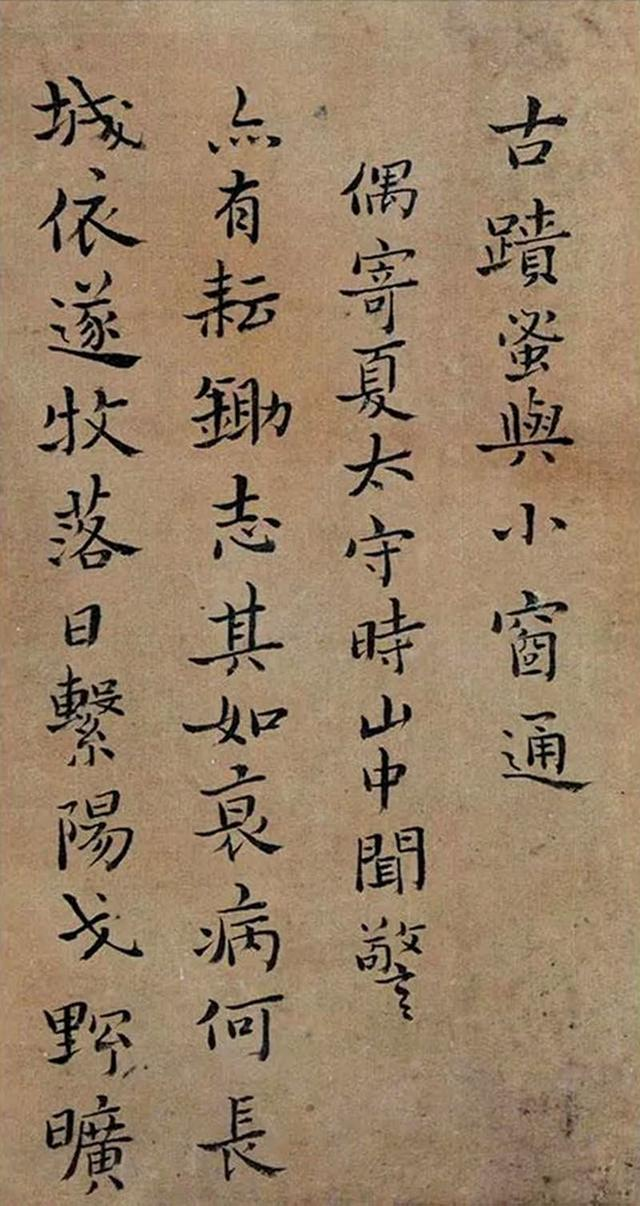 古蹟蛩與小窗通
偶寄夏太守時山中聞警
亦有耘鋤志其如衰病何長
城依遂牧落日繫陽戈野曠